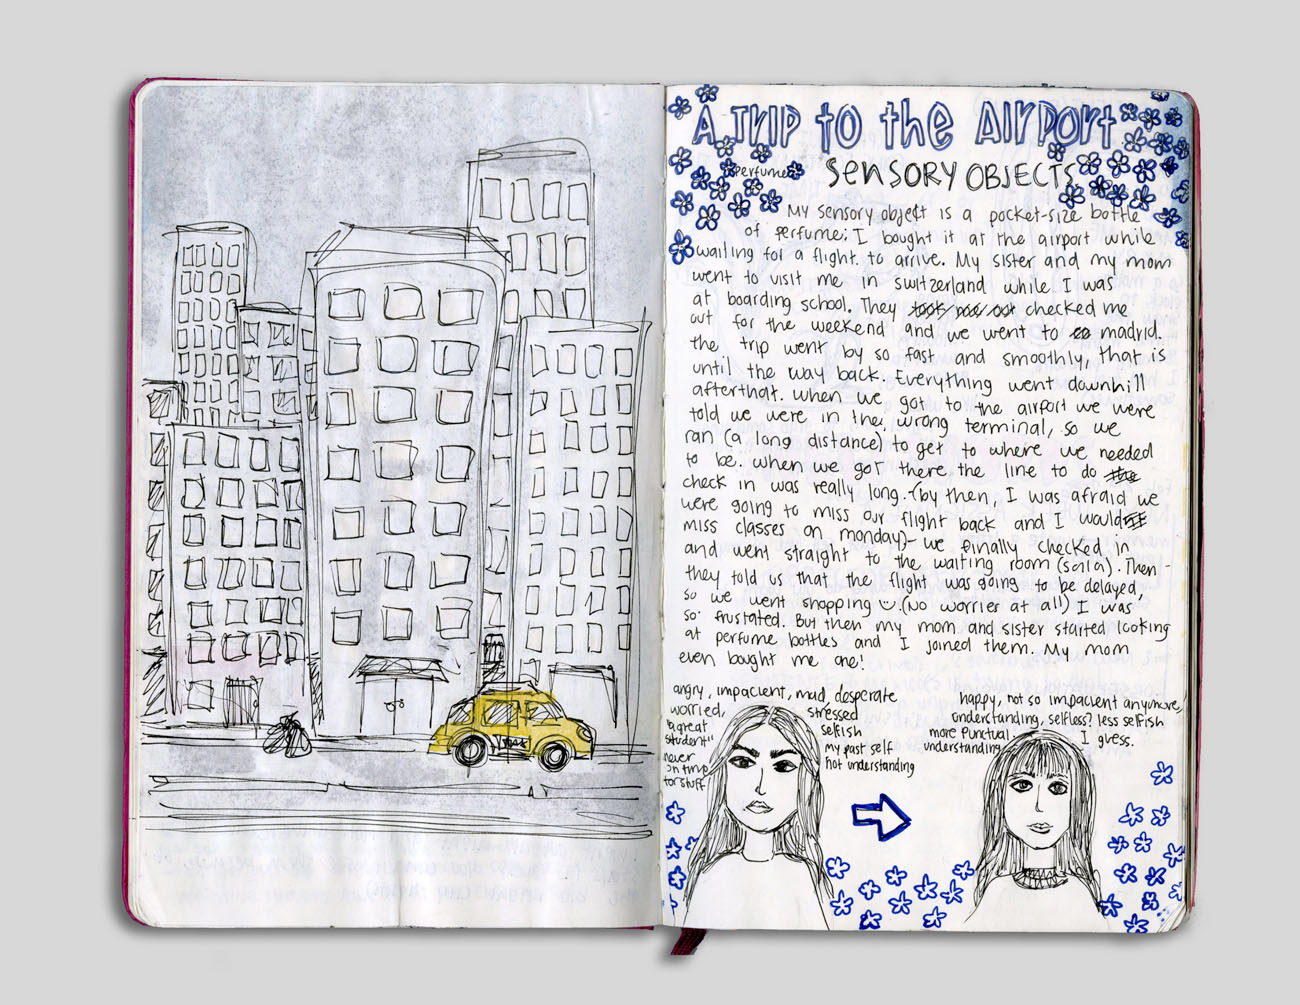 A TRIP to the AIRPORT
Perfume
SENSORY OBJECTS
My sensory object is a pocket-size bottle
of perfume; I bought it at the airport while
waiting for a flight. to arrive. My sister and my mom
went to visit me in switzerland while I was
at boarding school. They took me out checked me
out for the weekend and we went to madrid.
the trip went by so fast and smoothly, that is
until the way back. Everything went downhill
afterthat. when we got to the airport we were
told we were in the, wrong terminal, so we
ran (a long distance) to get to where we needed
to be. when we got there the line to do the
check in was really long. (by then, I was afraid we
were going to miss our flight back and I would
miss classes on monday)- we finally checked in
and went straight to the waiting room (sala). Then -
they told us that the flight was going to be delayed,
so we went shopping (No worries at all) I was
so frustated. But then my mom and sister started looking
at perfume bottles and I joined them. My mom
even bought me one!
angry, impacient, mad, desperate,
worried,
"a great
student"
never
on time
for stuff
stressed
selfish
my past self
not understanding
happy, not so impacient anymore,
understanding, selfless? less selfish
more Punctual I guess.
understanding